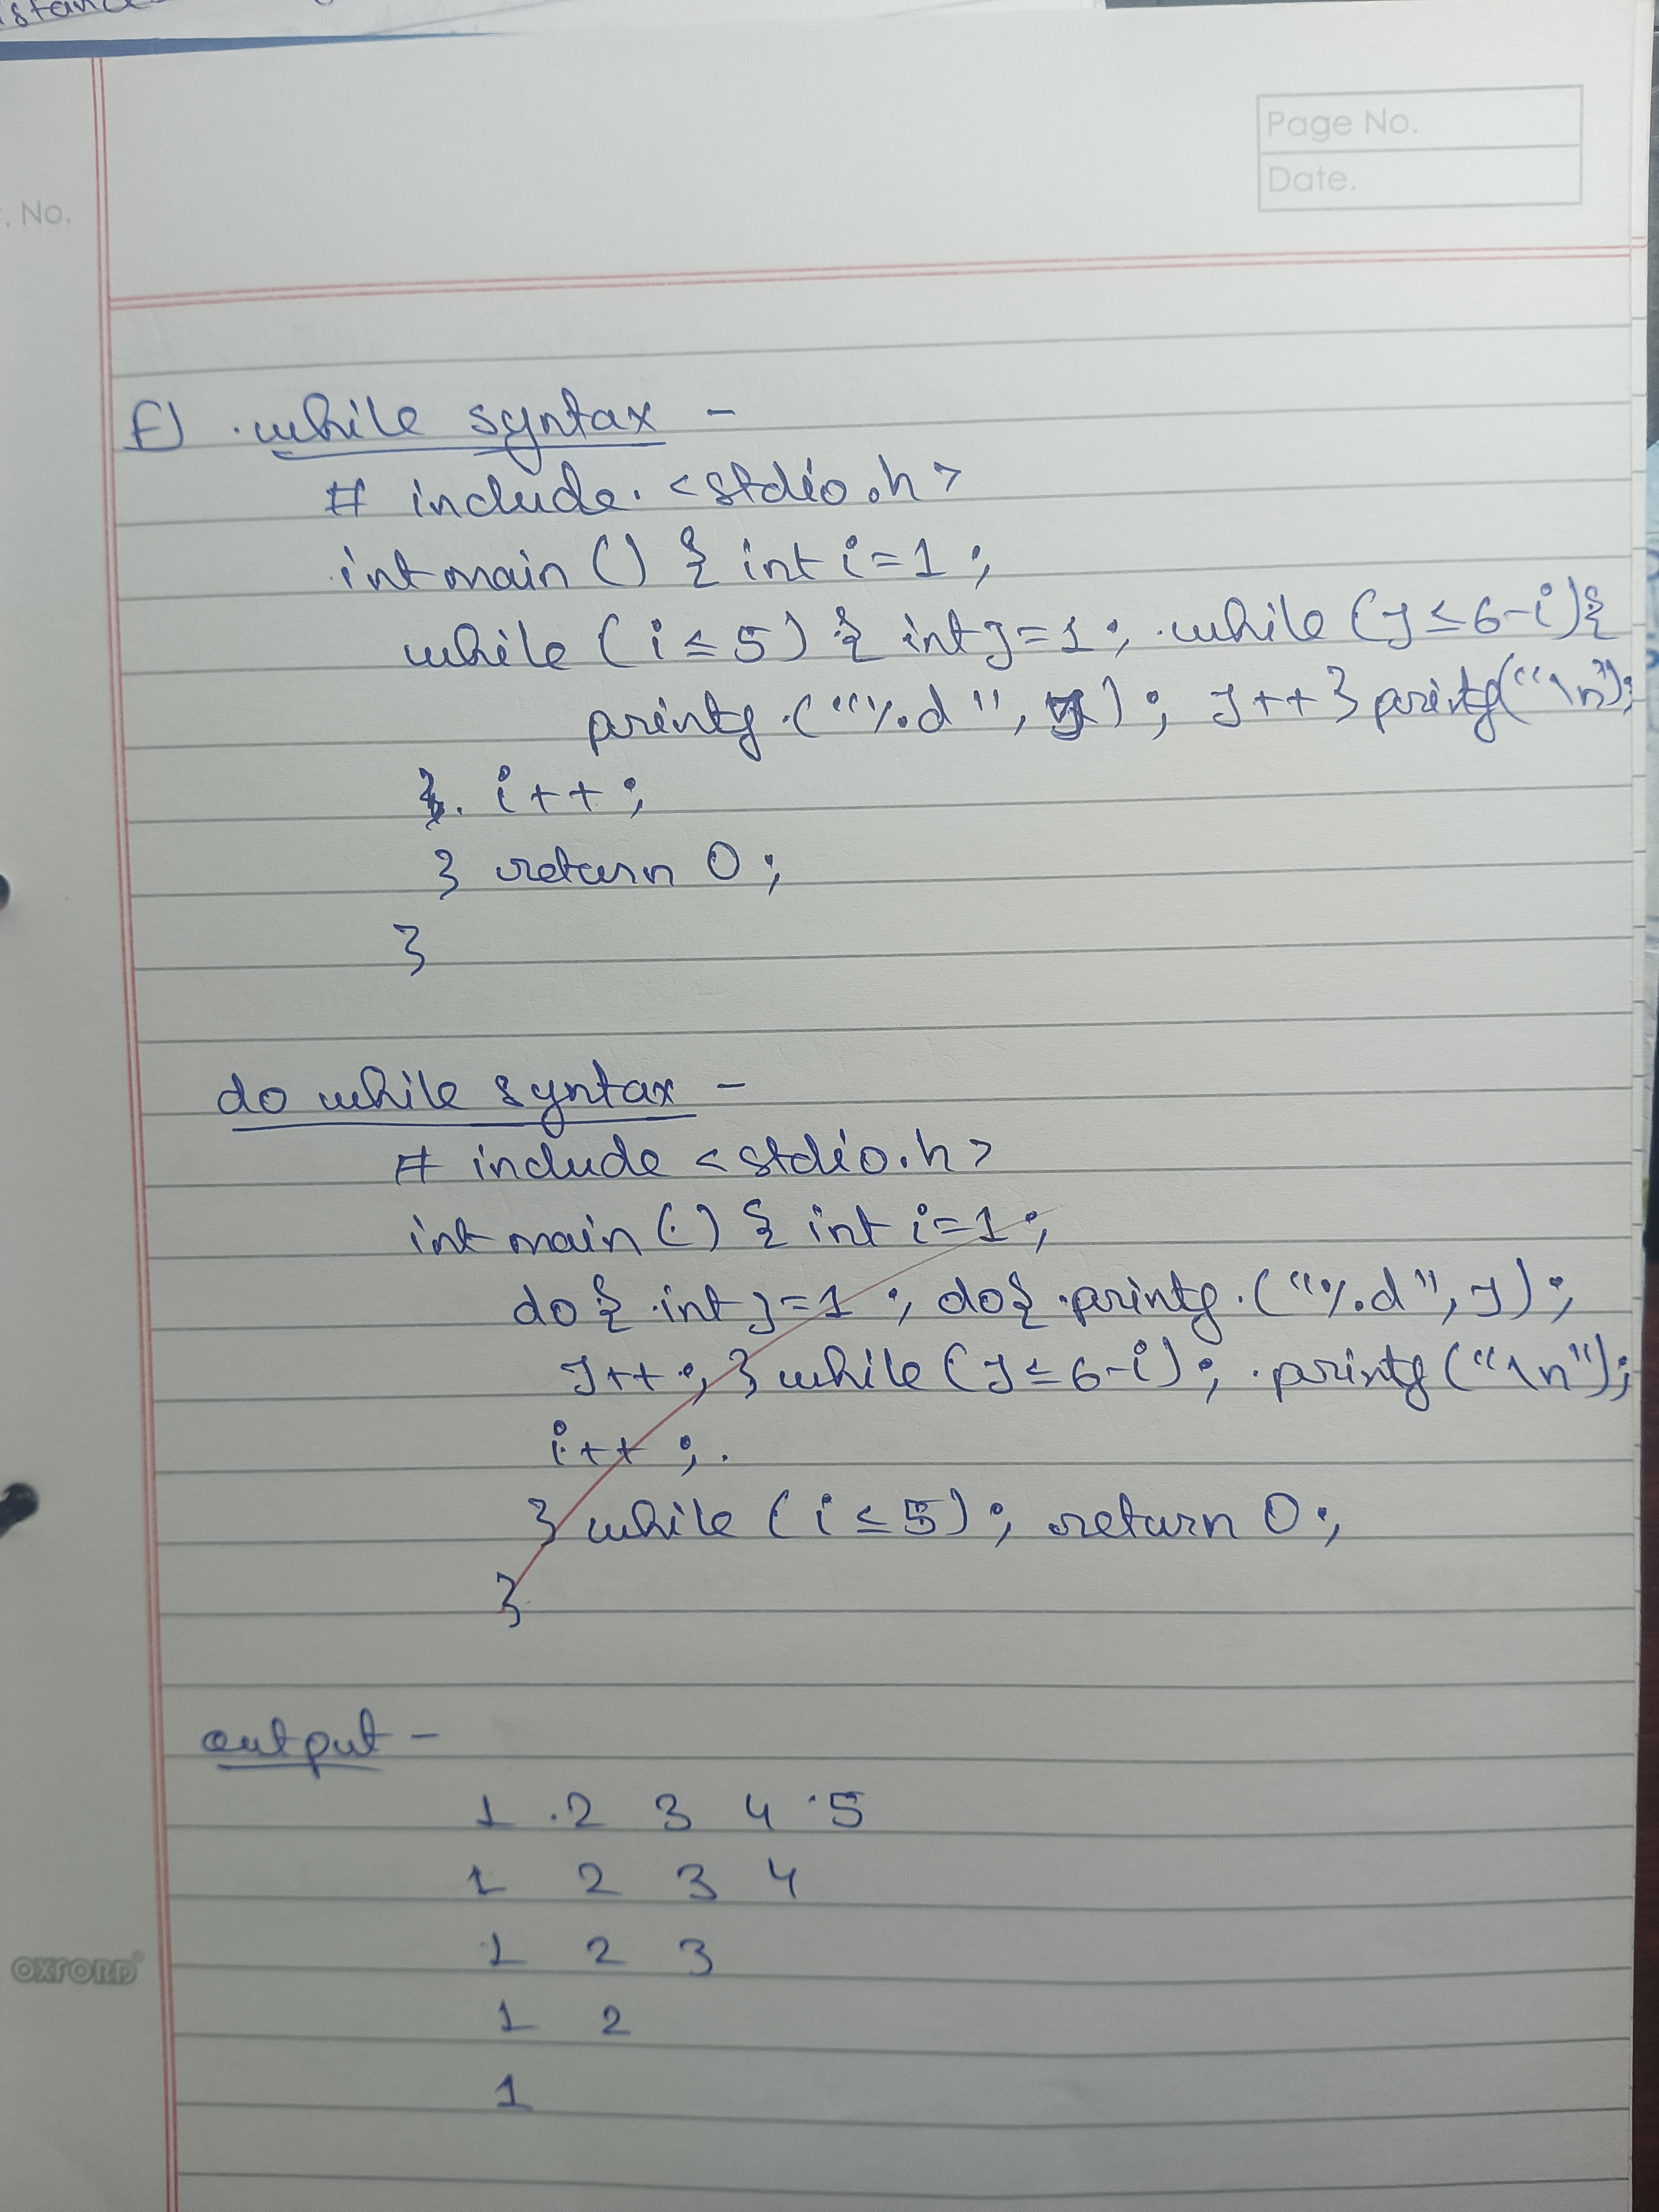 Page No.
Date.
. No.
F) while syntax -
# include <stdio.h>
int main () { int i=1;
while (i≤5) { int j=1; while (j≤6-i){
printf ("%d", j); j++ } printf("\n");
}. i++;
} return 0;
}
do while syntax -
# include <stdio.h>
int main () { int i=1;
do { int j=1; do{ printf ("%d", j);
j++; } while (j≤6-i); printf ("\n");
i++;
} while (i≤5); return 0;
}
output -
1 2 3 4 5
1 2 3 4
1 2 3
1 2
1
OXFORD